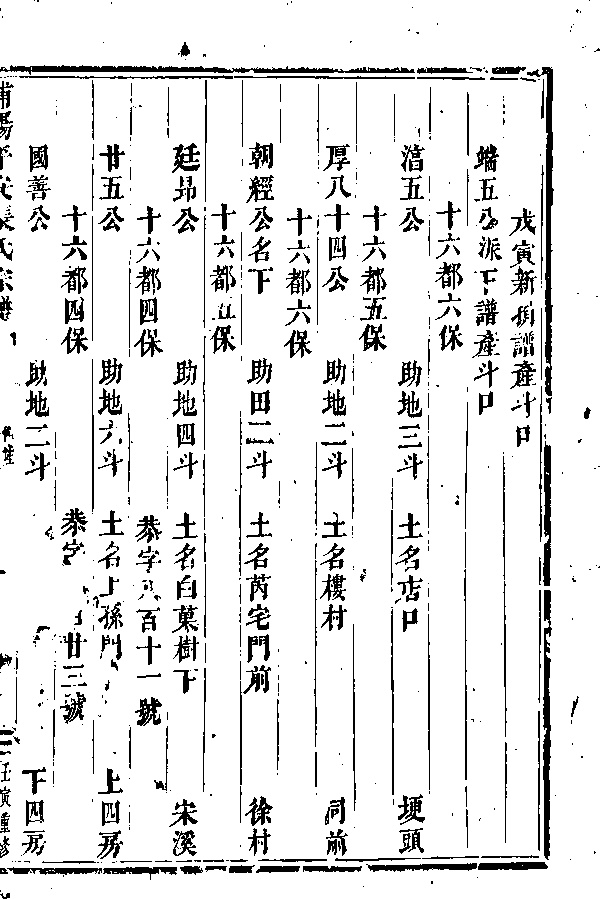 戊寅新捐譜產斗口
端五公派下譜產斗口
十六都六保
湻五公 助地三斗 土名店口 埂頭
十六都五保
厚八十四公 助地二斗 土名樓村 同前
十六都六保
朝經公名下 助田二斗 土名芮宅門前 徐村
十六都五保
廷昻公 助地四斗 土名白菓樹下 宋溪
十六都四保 恭字 百十一號
廿五公 助地六斗 土名上孫門 上四房
十六都四保 恭字 廿三號
國善公 助地二斗 下四房
浦陽平安張氏宗譜 壬寅重修